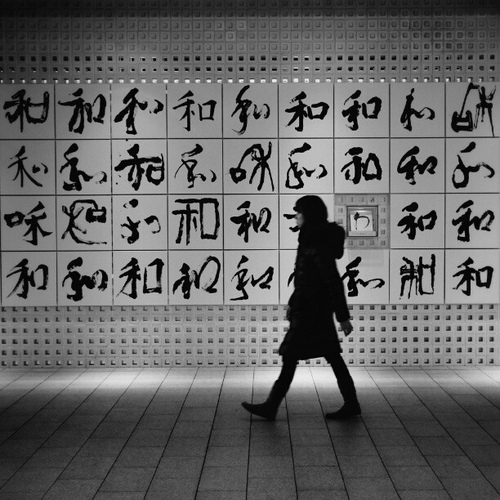 和和和和和和和和和
和和和和咊和和和和
咊和和和和わ和和
和和和和和和和和